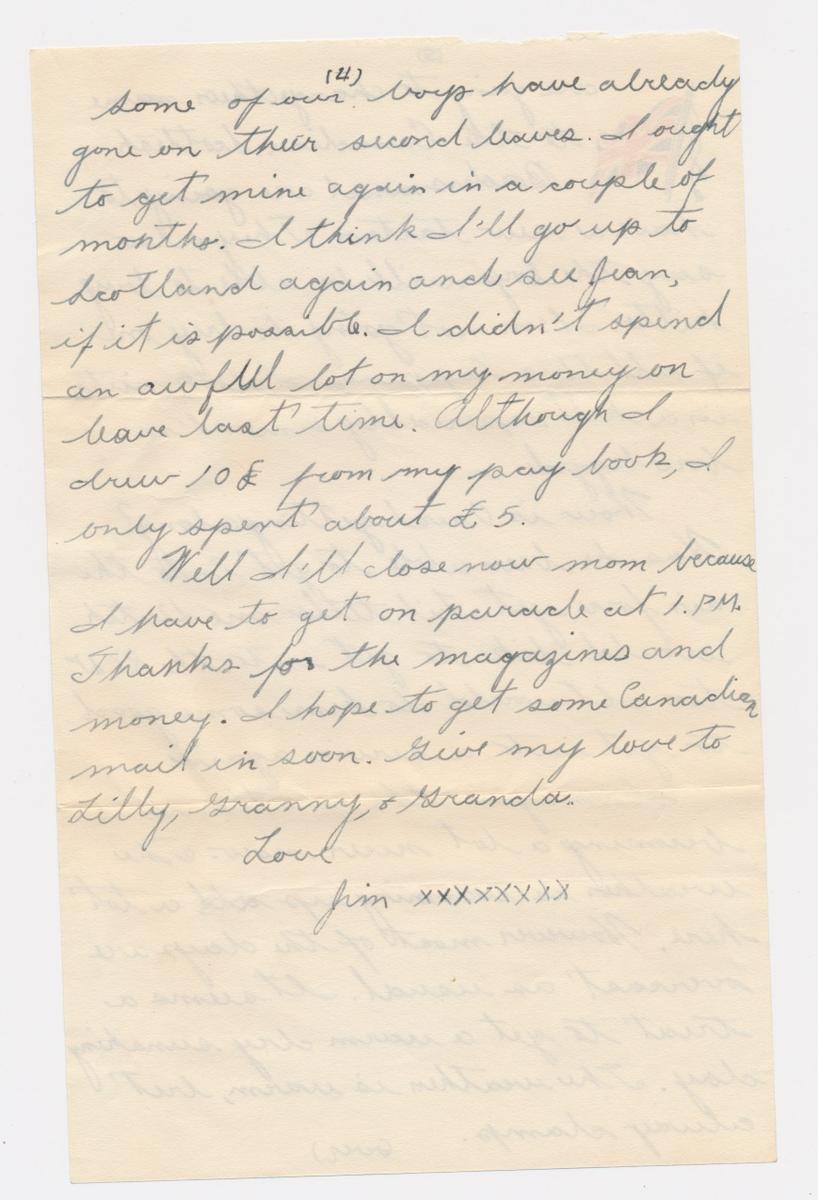 (4)
some of our boys have already
gone on their second leaves. I ought
to get mine again in a couple of
months. I think I'll go up to
Scotland again and see Jean,
if it is possible. I didn't spend
an awful lot on my money on
leave last time. Although I
drew 10 £ from my pay book, I
only spent about £ 5.
Well I'll close now mom because
I have to get on parade at 1. P.M.
Thanks for the magazines and
money. I hope to get some Canadian
mail in soon. Give my love to
Lilly, Granny, & Granda..
Love
Jim xxxxxxxx